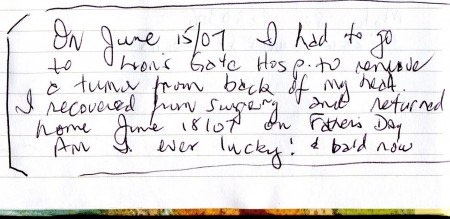 ON June 15/07 I had to go
to Lion's Gate Hosp. to remove
a tumor from back of my head.
I recovered from surgery and returned
home June 18/07 on Father's Day
Am I ever lucky! & bald now